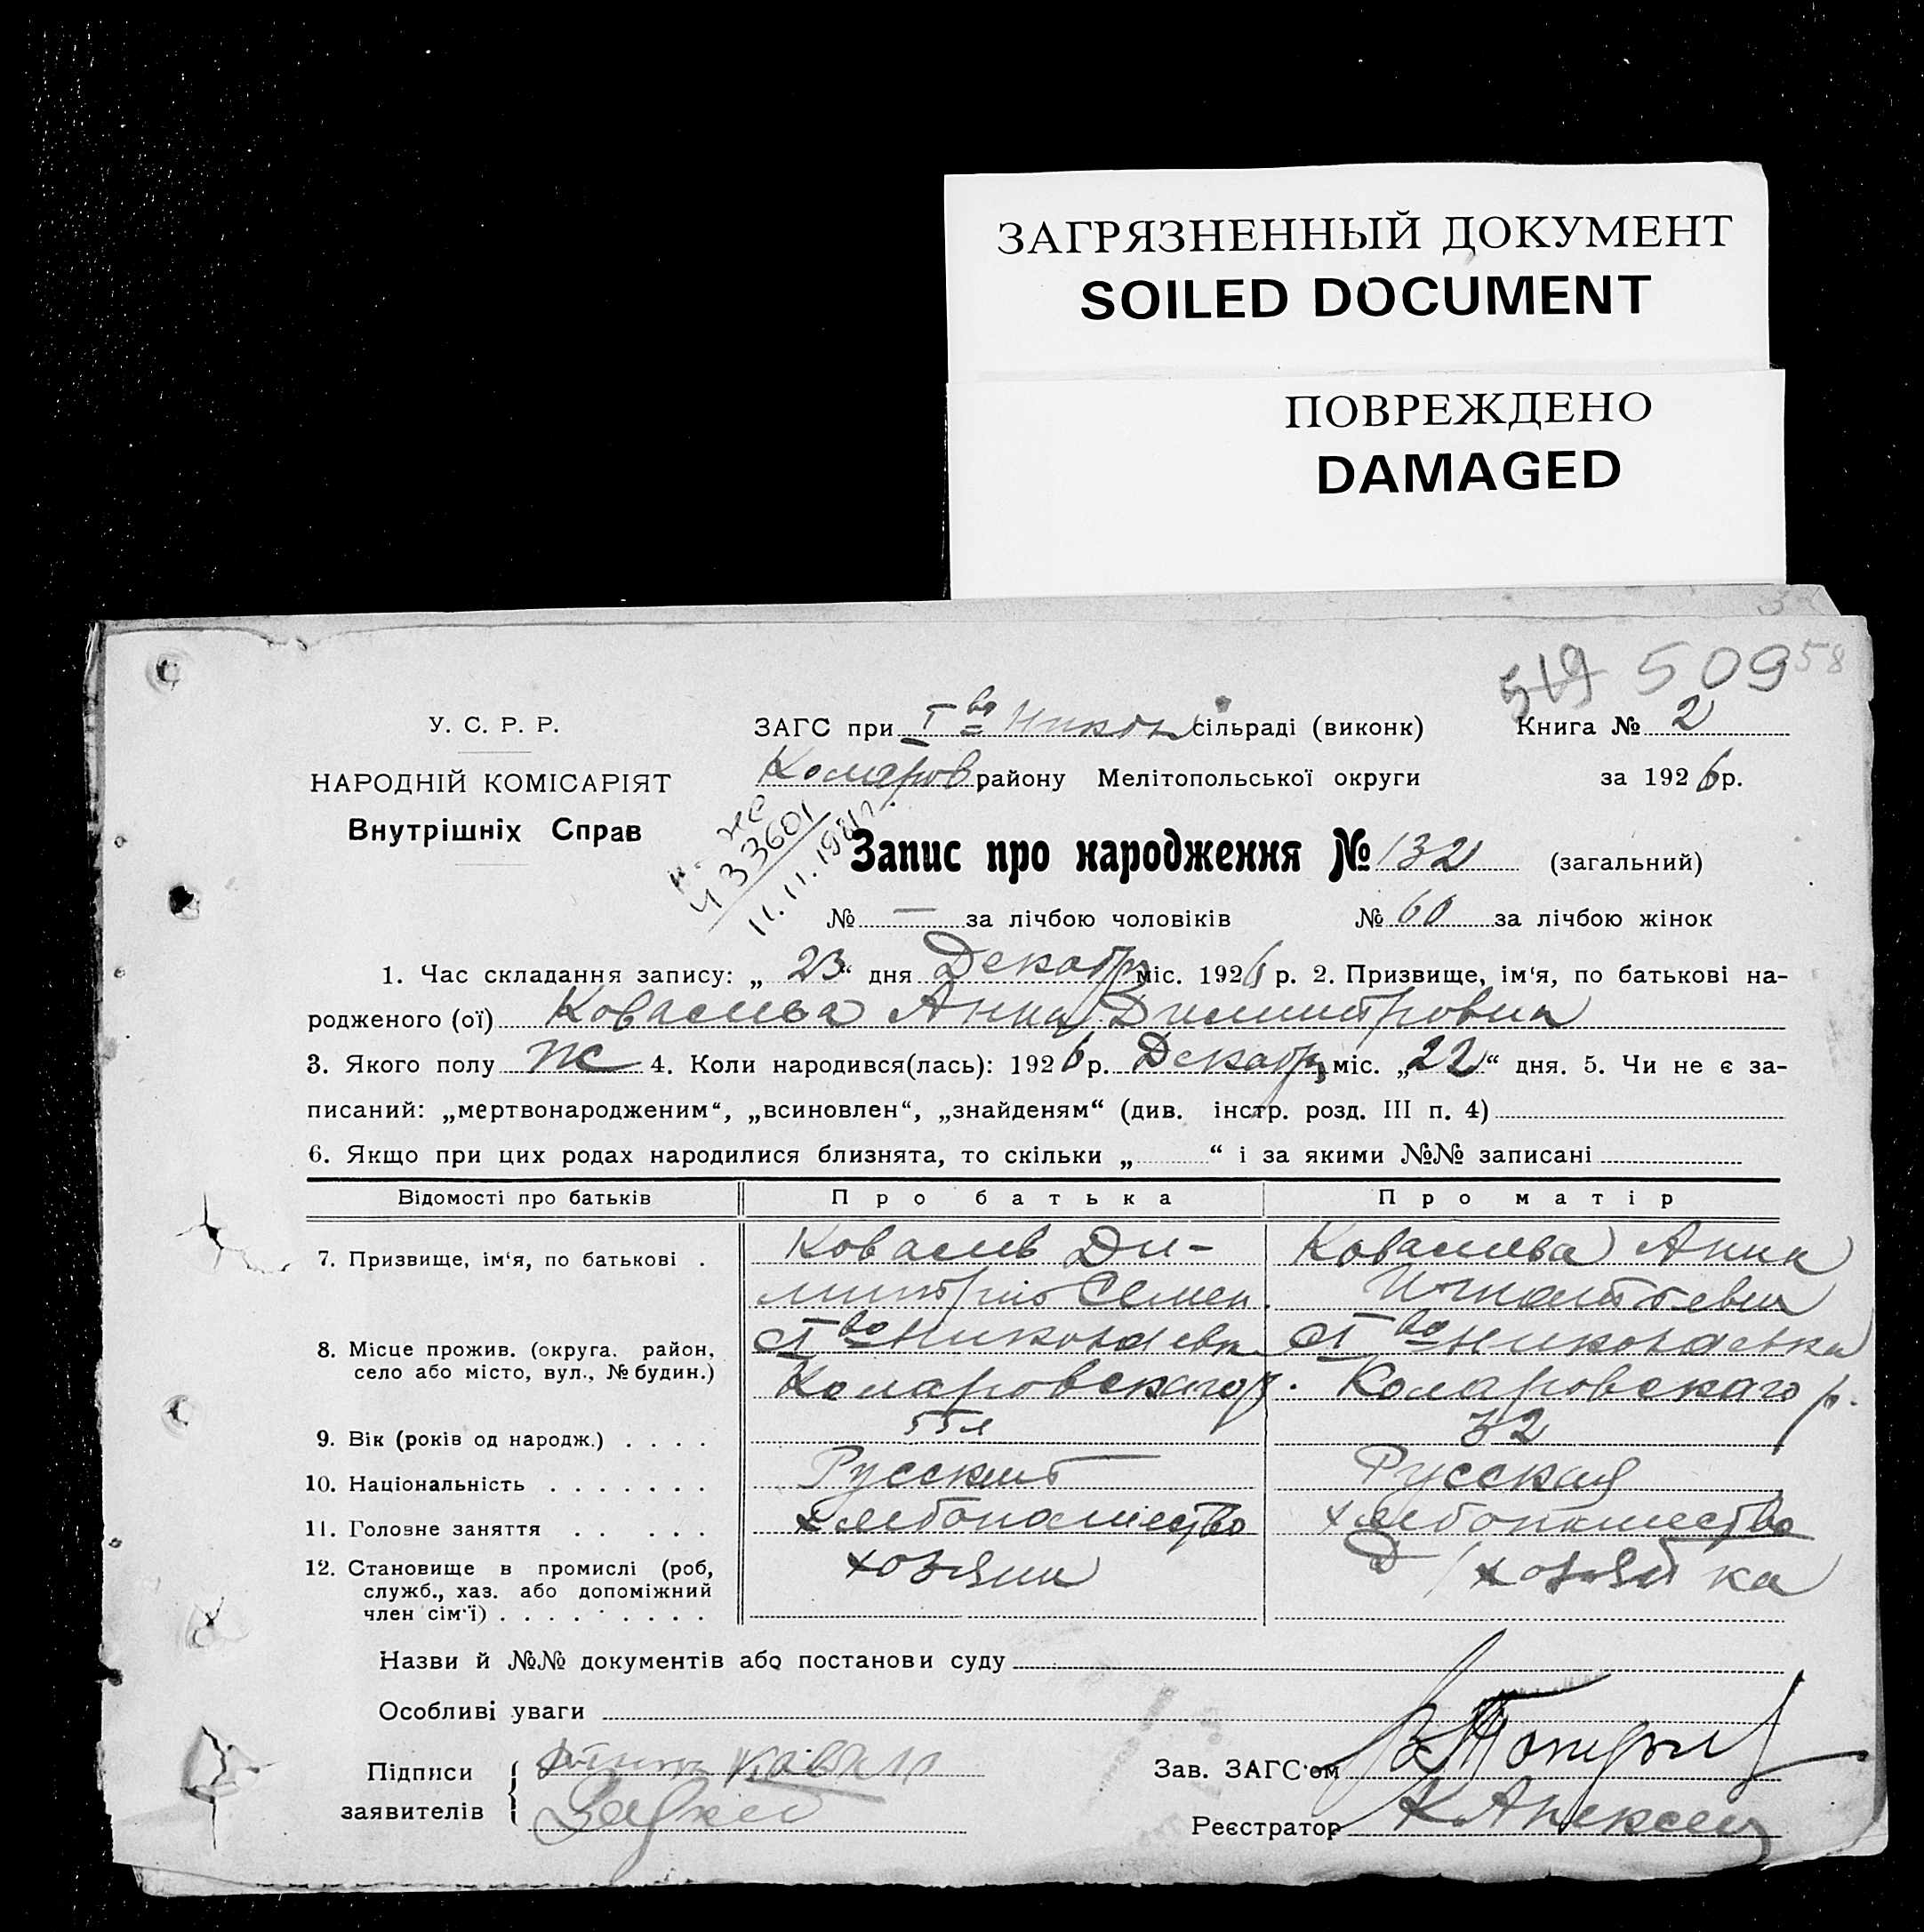 ЗАГРЯЗНЕННЫЙ ДОКУМЕНТ
SOILED DOCUMENT
ПОВРЕЖДЕНО
DAMAGED
519 509 58
У. С. Р. Р.
ЗАГС при І во Никол сільраді (виконк) Книга № 2
НАРОДНІЙ КОМІСАРІЯТ
району Мелітопольської округи за 1926 р.
Внутрішніх Справ
33601
11.11.19
Запис про народження № 132 (загальний)
№ — за лічбою чоловіків № 60 за лічбою жінок
1. Час складання запису: „ 23 “ дня Декабря міс. 1926 р. 2. Призвище, ім'я, по батькові на-
родженого (ої) Анна Димитровна
3. Якого полу Ж 4. Коли народився(лась): 1926 р. Декабря міс. „22“ дня. 5. Чи не є за-
писаний: „мертвонародженим“, „всиновлен“, „знайденям“ (див. інстр. розд. III п. 4)
6. Якщо при цих родах народилися близнята, то скільки „ “ і за якими №№ записані
Відомості про батьків Про батька Про матір
7. Призвище, ім'я, по батькові . Ди- Анна
митрий Семен. Игнатьевна
8. Місце прожив. (округа. район, І во Николаевк І во Николаевка
село або місто, вул., № будин.) Коларовскаго р. Коларовскаго р.
9. Вік (років од народж.) . . . . 55 л 32
10. Національність . . . . . . . Русский Русская
11. Головне заняття . . . . . хлебопашество хлебопашество
12. Становище в промислі (роб, хозяин хозяйка
служб., хаз. або допоміжний
член сім'ї) . . . . . . . . .
Назви й №№ документів або постанови суду
Особливі уваги
Підписи
Зав. ЗАГС'ом
заявителів
Реєстратор К Алексеи